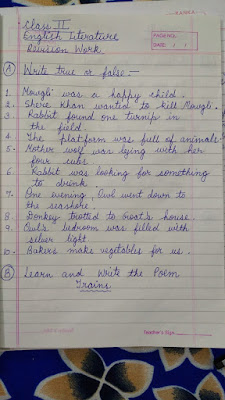 Class II
English Literature
Revision Work
PAGE NO.
DATE: / /
(A) Write true or false:-
1. Mowgli was a happy child.
2. Shere Khan wanted to kill Mowgli.
3. Rabbit found one turnip in
the field.
4. The platform was full of animals.
5. Mother wolf was lying with her
four cubs.
6. Rabbit was looking for something
to drink.
7. One evening, Owl went down to
the seashore.
8. Donkey trotted to Goat's house.
9. Owl's bedroom was filled with
silver light.
10. Bakers make vegetables for us.
(B) Learn and Write the Poem
Trains
Teacher's Sign